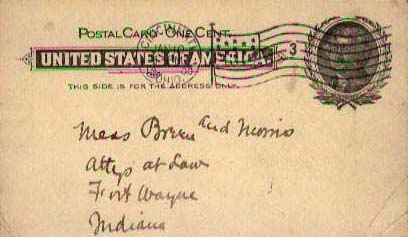 POSTAL CARD ONE CENT.
CINCINNATI
JAN 10
OHIO
3
UNITED STATES OF AMERICA.
THIS SIDE IS FOR THE ADDRESS ONLY.
Mess Breen and Morris
Attys at Law
Fort Wayne
Indiana